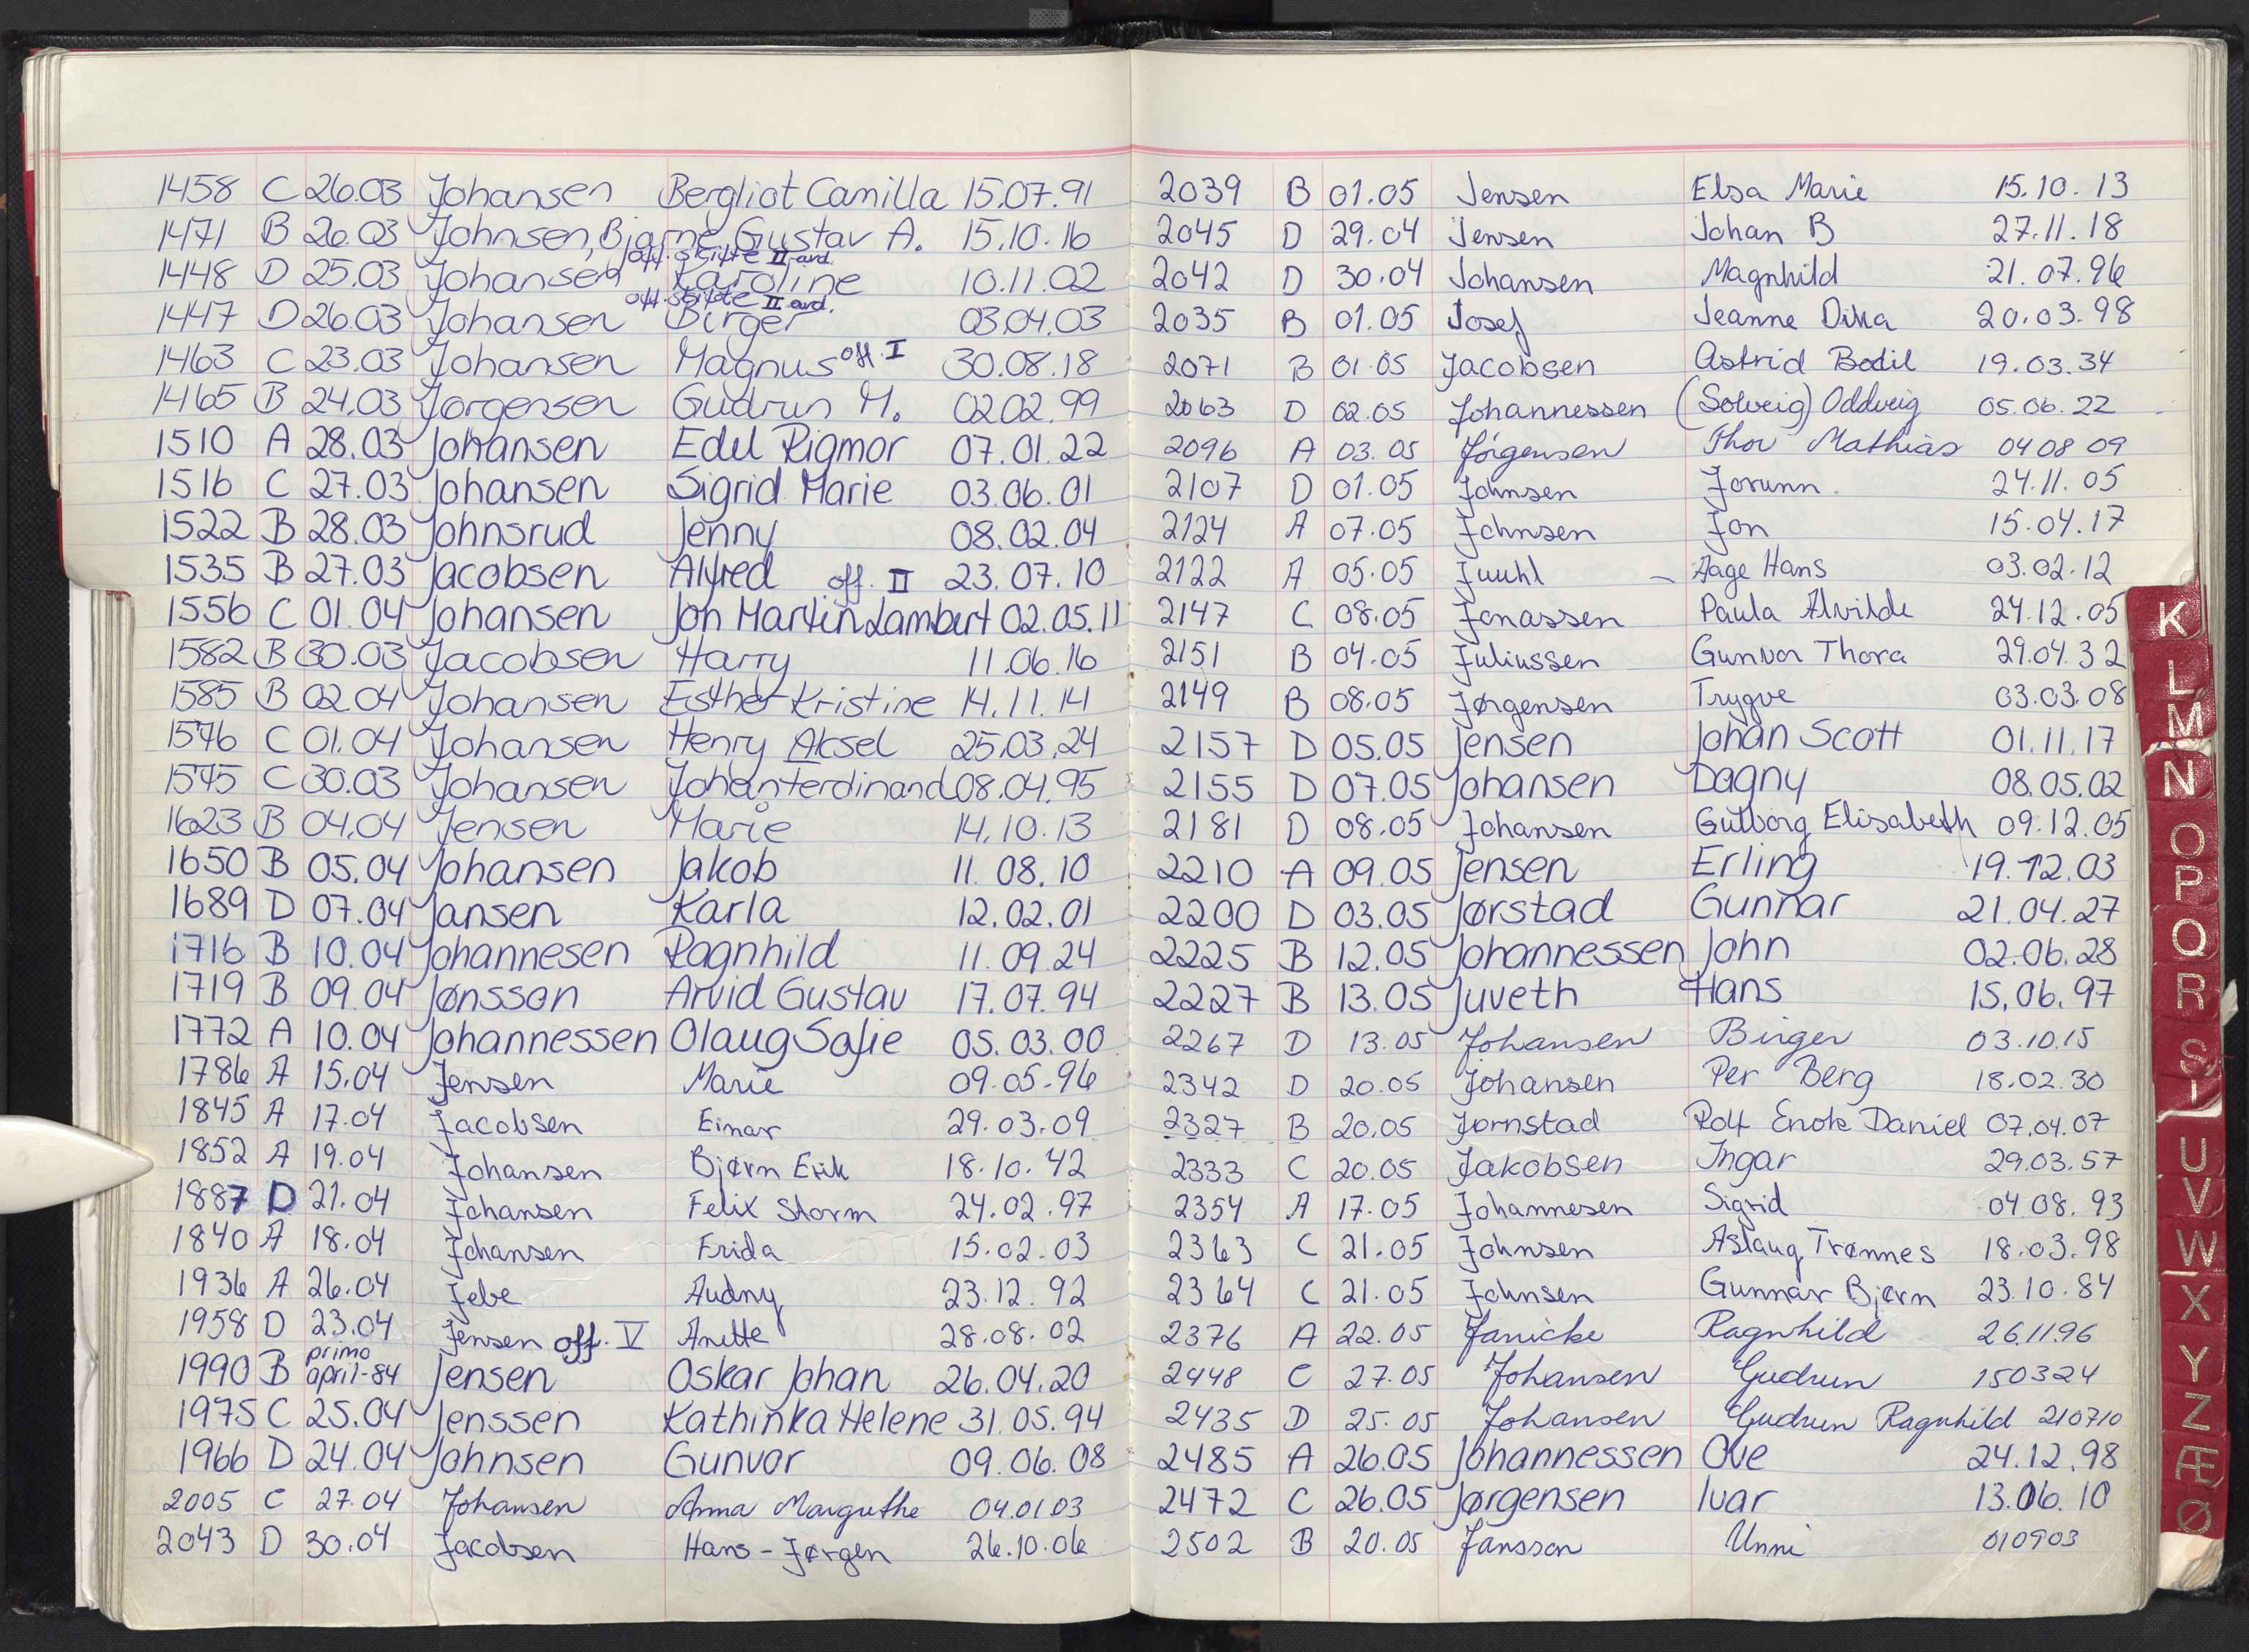 1458 C 26.03 Johansen Bergliot Camilla 15.07.91
1471 B 26.03 Johnsen, Bjarne Gustav A. 15.10.16
off. skifte II avd.
1448 D 25.03 Johansen Karoline 10.11.02
off. skifte II avd.
1447 D 26.03 Johansen Birger 03.04.03
1463 C 23.03 Johansen Magnus off. I 30.08.18
1465 B 24.03 Jørgensen Gudrun M. 02.02.99
1510 A 28.03 Johansen Edel Rigmor 07.01.22
1516 C 27.03 Johansen Sigrid Marie 03.06.01
1522 B 28.03 Johnsrud Jenny 08.02.04
1535 B 27.03 Jacobsen Alfred off. II 23.07.10
1556 C 01.04 Johansen Jon Martin Lambert 02.05.11
1582 B 30.03 Jacobsen Harry 11.06.16
1585 B 02.04 Johansen Esther Kristine 14.11.14
1576 C 01.04 Johansen Henry Aksel 25.03.24
1575 C 30.03 Johansen Johan Ferdinand 08.04.95
1623 B 04.04 Jensen Marie 14.10.13
1650 B 05.04 Johansen Jakob 11.08.10
1689 D 07.04 Jansen Karla 12.02.01
1716 B 10.04 Johannesen Ragnhild 11.09.24
1719 B 09.04 Jønsson Arvid Gustav 17.07.94
1772 A 10.04 Johannessen Olaug Sofie 05.03.00
1786 A 15.04 Jensen Marie 09.05.96
1845 A 17.04 Jacobsen Einar 29.03.09
1852 A 19.04 Johansen Bjørn Erik 18.10.42
1887 D 21.04 Johansen Felix Storm 24.02.97
1840 A 18.04 Johansen Frida 15.02.03
1936 A 26.04 Jebe Audny 23.12.92
1958 D 23.04 Jensen off. V Anette 28.08.02
1990 B primo april-84 Jensen Oskar Johan 26.04.20
1975 C 25.04 Jenssen Kathinka Helene 31.05.94
1966 D 24.04 Johnsen Gunvor 09.06.08
2005 C 27.04 Johansen Anna Margrethe 04.01.03
2043 D 30.04 Jacobsen Hans-Jørgen 26.10.06
2039 B 01.05 Jensen Elsa Marie 15.10.13
2045 D 29.04 Jensen Johan B 27.11.18
2042 D 30.04 Johansen Magnhild 21.07.96
2035 B 01.05 Josef Jeanne Dika 20.03.98
2071 B 01.05 Jacobsen Astrid Bodil 19.03.34
2063 D 02.05 Johannessen (Solveig) Oddveig 05.06.22
2096 A 03.05 Jörgensen Thor Mathias 04 08 09
2107 D 01.05 Johnsen Jorunn 24.11.05
2124 A 07.05 Johnsen Jon 15.04.17
2122 A 05.05 Juuhl Aage Hans 03.02.12
2147 C 08.05 Jonassen Paula Alvilde 24.12.05
2151 B 04.05 Juliussen Gunvor Thora 29.04.32
2149 B 08.05 Jørgensen Trygve 03.03.08
2157 D 05.05 Jensen Johan Scott 01.11.17
2155 D 07.05 Johansen Dagny 08.05.02
2181 D 08.05 Johansen Gutborg Elisabeth 09.12.05
2210 A 09.05 Jensen Erling 19.12.03
2200 D 03.05 Jørstad Gunnar 21.04.27
2225 B 12.05 Johannessen John 02.06.28
2227 B 13.05 Juveth Hans 15.06.97
2267 D 13.05 Johansen Birger 03.10.15
2342 D 20.05 Johansen Per Berg 18.02.30
2327 B 20.05 Jørnstad Rolf Enok Daniel 07.04.07
2333 C 20.05 Jakobsen Ingar 29.03.57
2354 A 17.05 Johannesen Sigrid 04.08.93
2363 C 21.05 Johnsen Aslaug Trønnes 18.03.98
2364 C 21.05 Johnsen Gunnar Bjørn 23.10.84
2376 A 22.05 Janicke Ragnhild 26.11.96
2448 C 27.05 Johansen Gudrun 150324
2435 D 25.05 Johansen Gudrun Ragnhild 210710
2485 A 26.05 Johannessen Ove 24.12.98
2472 C 26.05 Jørgensen Ivar 13.06.10
2502 B 20.05 Jansson Unni 010903
K
L
M
N
O
P
Q
R
S
T
U
V
W
X
Y
Z
Æ
Ø